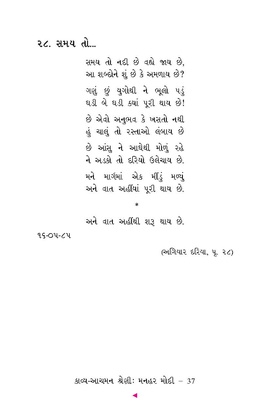 ૨૮. સમય તો...
સમય તો નદી છે વહ્યે જાય છે,
આ શબ્દોને શું છે કે અમળાય છે?
ગણું છું યુગોથી ને ભૂલો પડું
ઘડી બે ઘડી ક્યાં પૂરી થાય છે!
છે એવો અનુભવ કે ખસતો નથી
હું ચાલું તો રસ્તાઓ લંબાય છે
છે આંસુ ને આઘેથી મોળું રહે
ને અડકો તો દરિયો ઉલેચાય છે.
મને માર્ગમાં એક મીંડું મળ્યું
અને વાત અહીંયાં પૂરી થાય છે.
*
અને વાત અહીંથી શરૂ થાય છે.
૧૬-૦૫-૮૫
(અગિયાર દરિયા, પૃ. ૨૮)
કાવ્ય-આચમન શ્રેણી: મનહર મોદી – 37